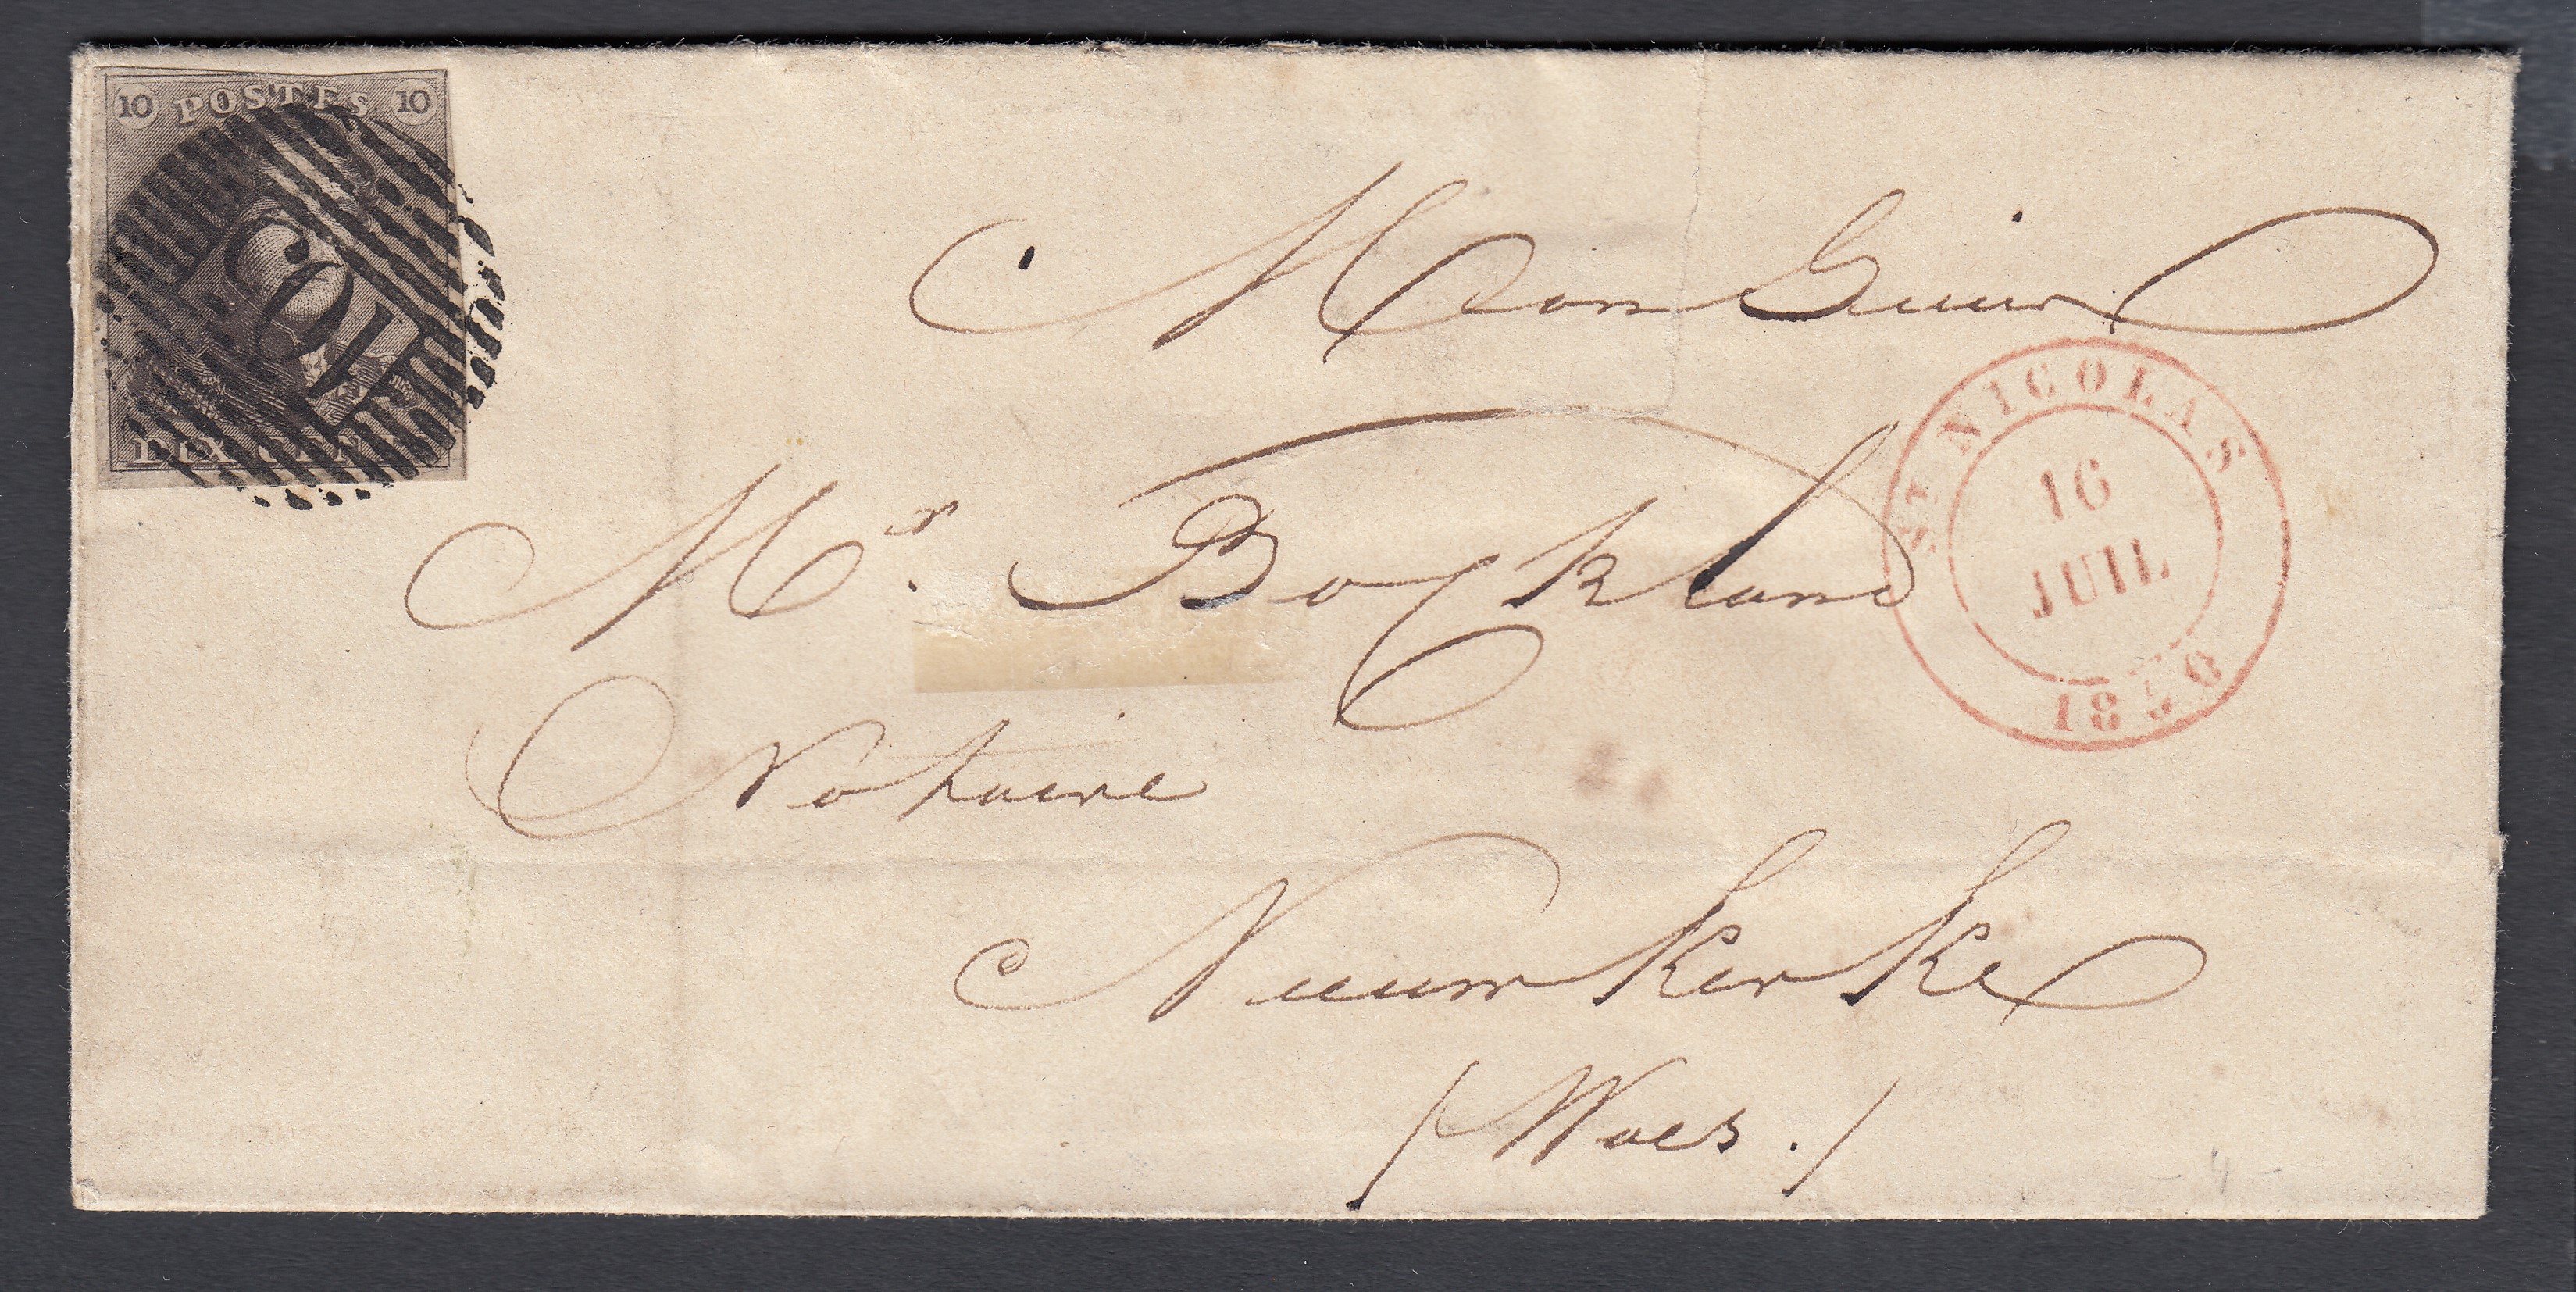 10 POSTES 10
DIX CENTS
Monsieur
Mr. Boÿkland
Notaire
Nieuwkerke
/Waes./
ST NICOLAS
16
JUIL
1850